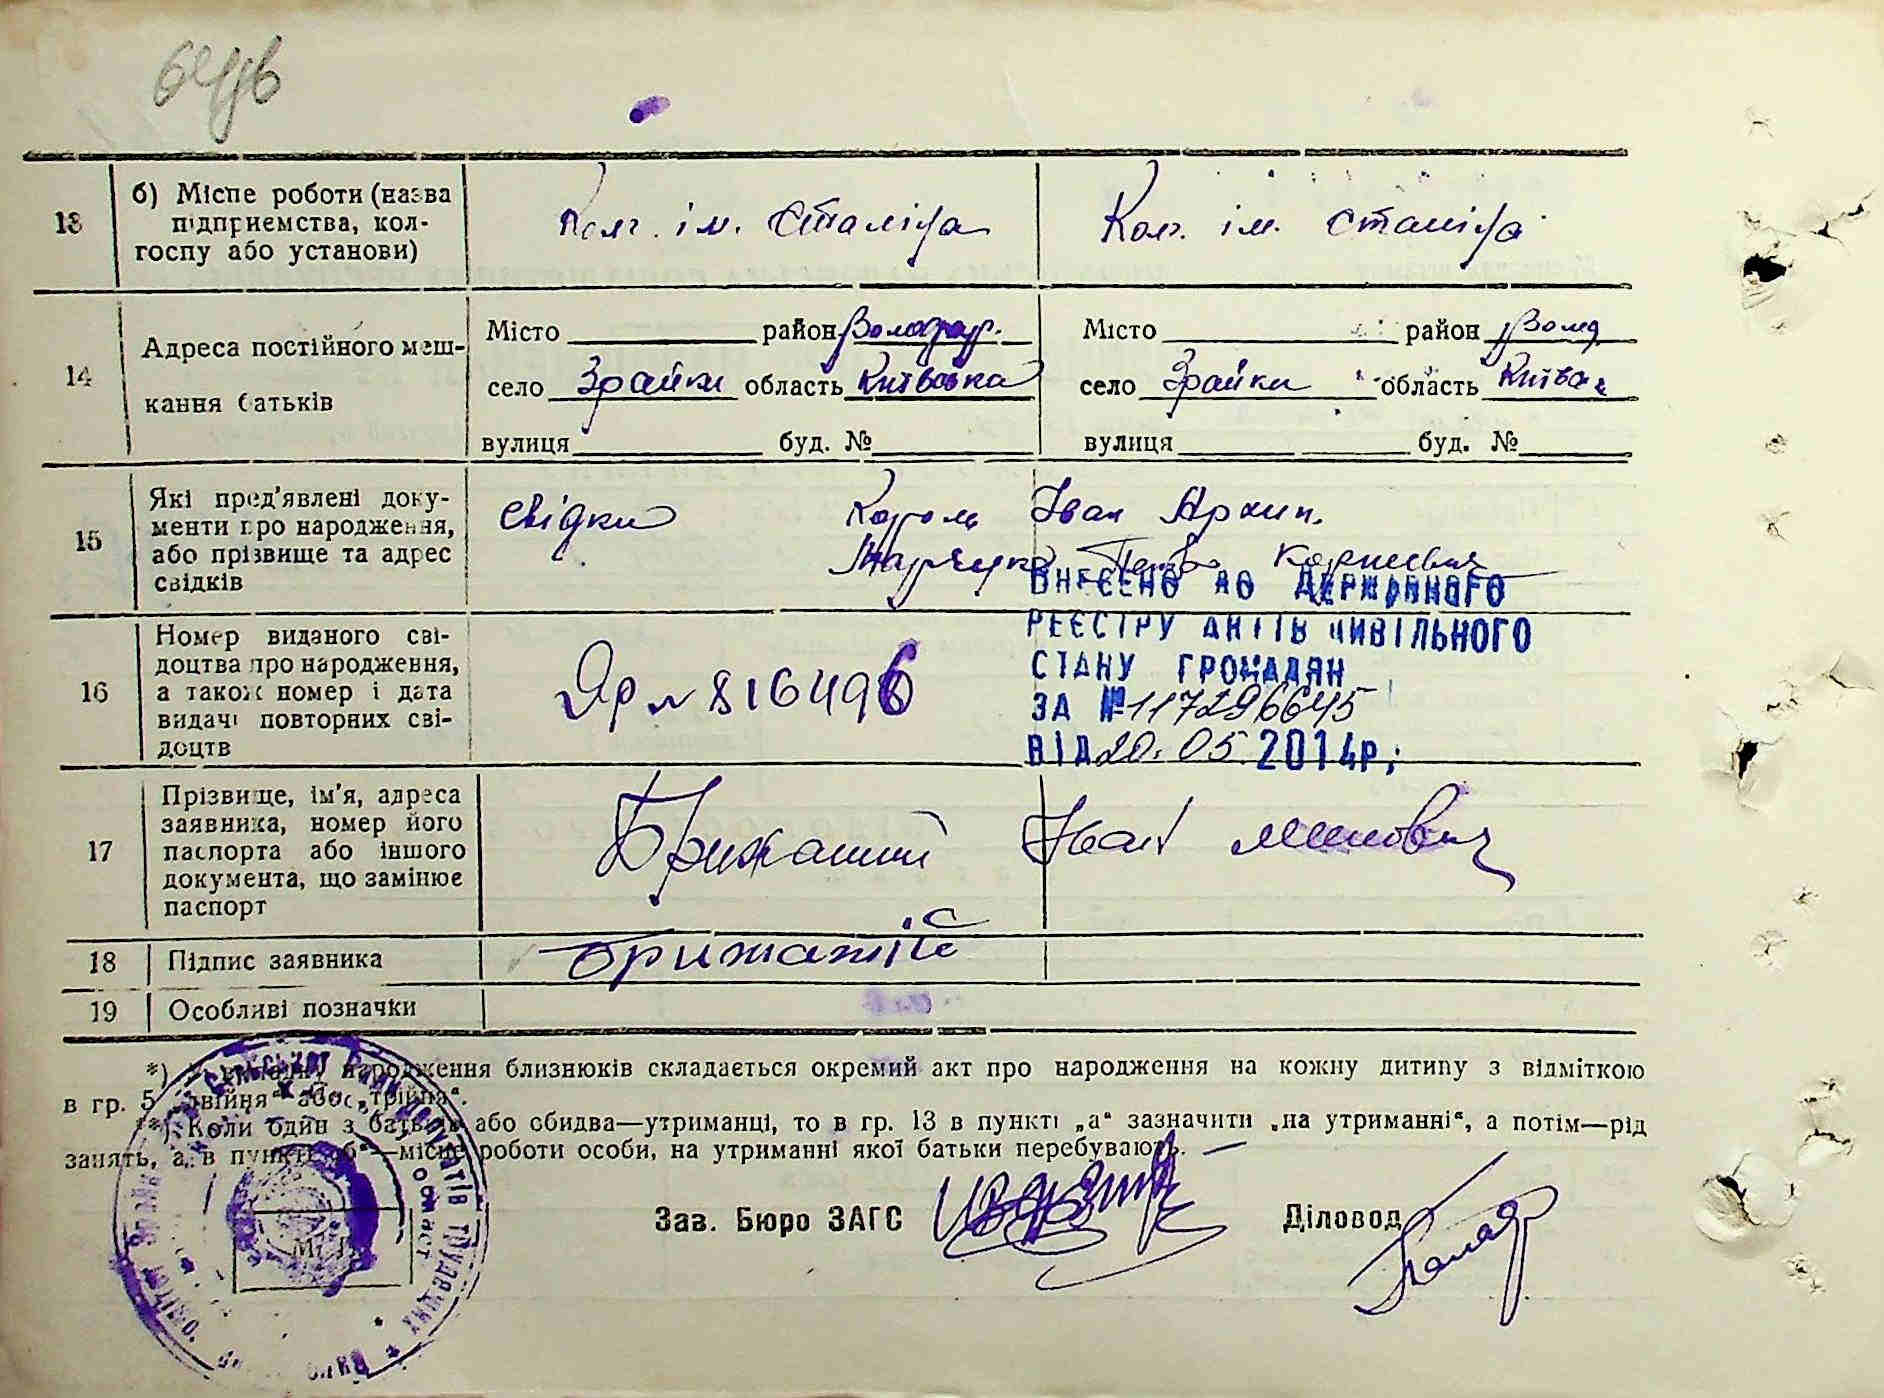 13 б) Місце роботи (назва
підприємства, кол-
госпу або установи)
Колг. ім. Сталіна Колг. ім. Сталіна
14 Адреса постійного меш-
кання батьків
Місто район Володар. Місто район Волод
село Зрайки область Київська село Зрайки область Київська
вулиця буд. № вулиця буд. №
15 Які пред'явлені доку-
менти про народження,
або прізвище та адрес
свідків
свідки Король Іван Архип.
Марченко Корнеевич
16 Номер виданого сві-
доцтва про народження,
а також номер і дата
видачі повторних сві-
доцтв
Яр № 816496
ВНЕСЕНО ДО ДЕРЖАВНОГО
РЕЄСТРУ АКТІВ ЦИВІЛЬНОГО
СТАНУ ГРОМАДЯН
ЗА №117296645
ВІД 20.05.2014р;
17 Прізвище, ім'я, адреса
заявника, номер його
паспорта або іншого
документа, що замінює
паспорт
Брижатий Іван
18 Підпис заявника
Брижатій
19 Особливі позначки
*) У випадку народження близнюків складається окремий акт про народження на кожну дитину з відміткою
в гр. 5 „двійня“ або „трійня“.
**) Коли один з батьків або обидва—утриманці, то в гр. 13 в пункті „а“ зазначити „на утриманні“, а потім—рід
занять, а в пункті „б“—місце роботи особи, на утриманні якої батьки перебувають.
Зав. Бюро ЗАГС Діловод
М. П.
депутатів трудящих